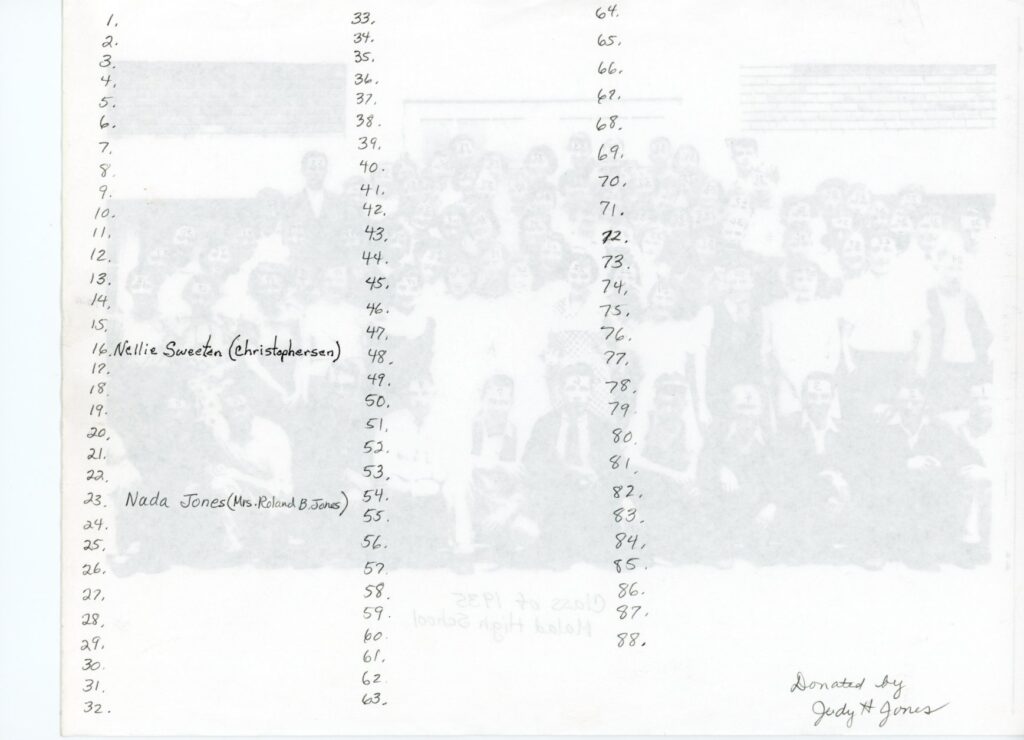 1.
2.
3.
4.
5.
6.
7.
8.
9.
10.
11.
12.
13.
14.
15.
16. Nellie Sweeten (Christophersen)
17.
18.
19.
20.
21.
22.
23. Nada Jones (Mrs. Roland B. Jones)
24.
25.
26.
27.
28.
29.
30.
31.
32.
33.
34.
35.
36.
37.
38.
39.
40.
41.
42.
43.
44.
45.
46.
47.
48.
49.
50.
51.
52.
53.
54.
55.
56.
57.
58.
59.
60.
61.
62.
63.
64.
65.
66.
67.
68.
69.
70.
71.
72.
73.
74.
75.
76.
77.
78.
79.
80.
81.
82.
83.
84.
85.
86.
87.
88.
Class of 1935
Malad High School
Donated by
Judy H Jones